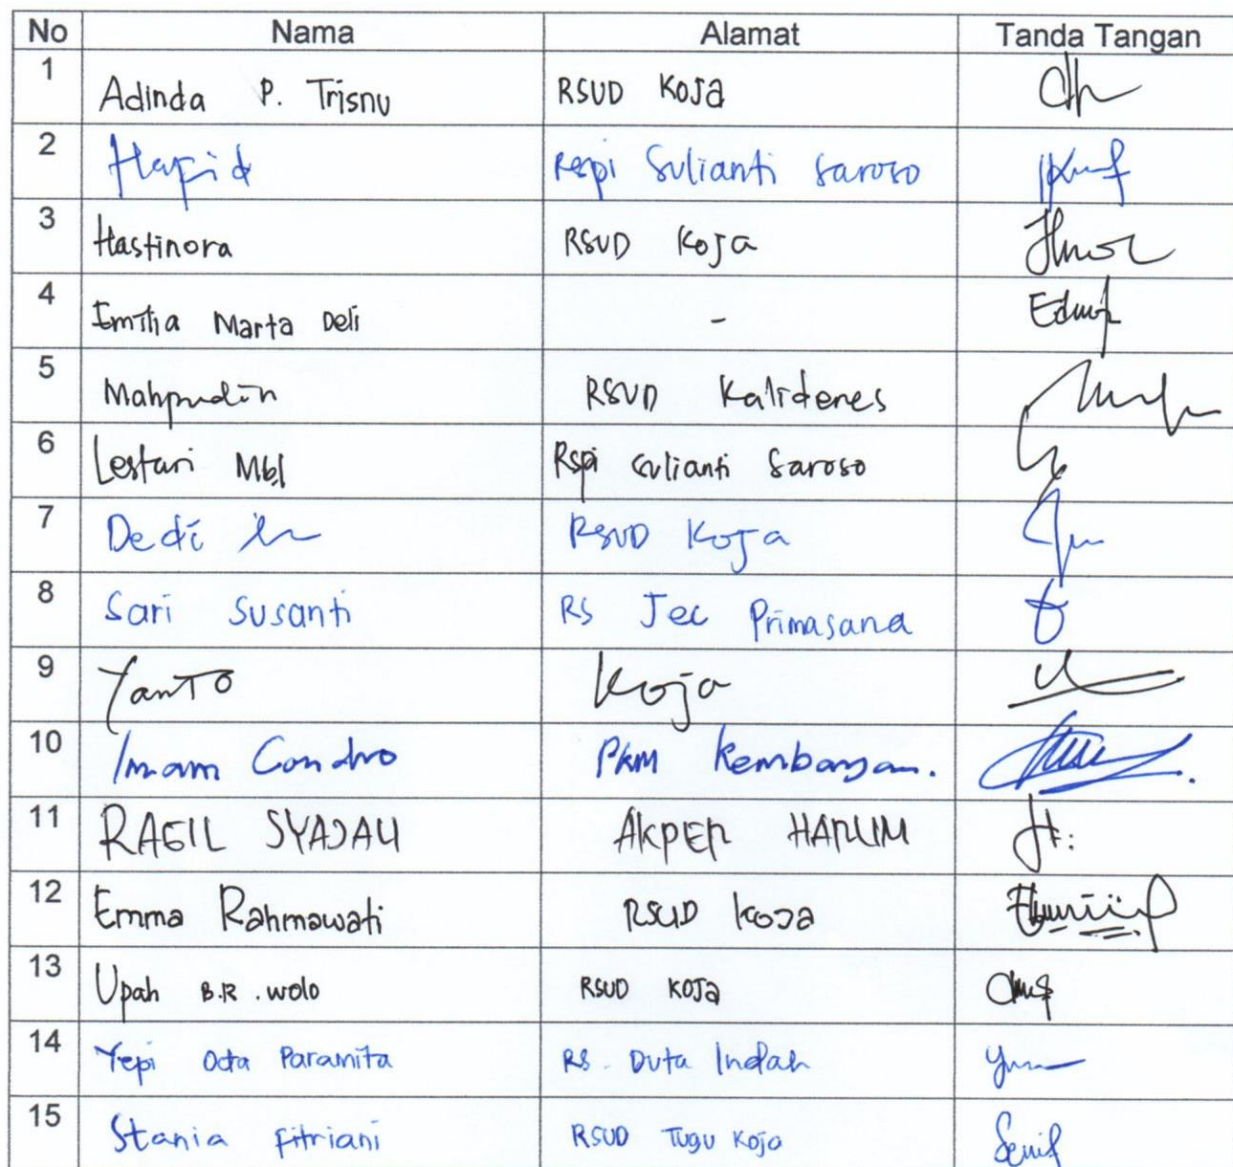 No Nama Alamat Tanda Tangan
1 Adinda P. Trisnu RSUD Koja
2 Hafid Rspi Sulianti Saroso
3 Hastinora RSUD Koja
4 Emilia Marta Deli -
5 Mahpudin RSUD Kalideres
6 Lestari Mbl Rspi Sulianti Saroso
7 Dedi RSUD Koja
8 Sari Susanti RS Jec Primasana
9 Yanto Koja
10 Imam Condro PKM Kembangan.
11 RAGIL SYAJALI AKPER HARUM
12 Emma Rahmawati RSUD Koja
13 Upah B.R. wolo RSUD KOJA
14 Yepi Octa Paramita RS. Duta Indah
15 Stania Fitriani RSUD Tugu Koja